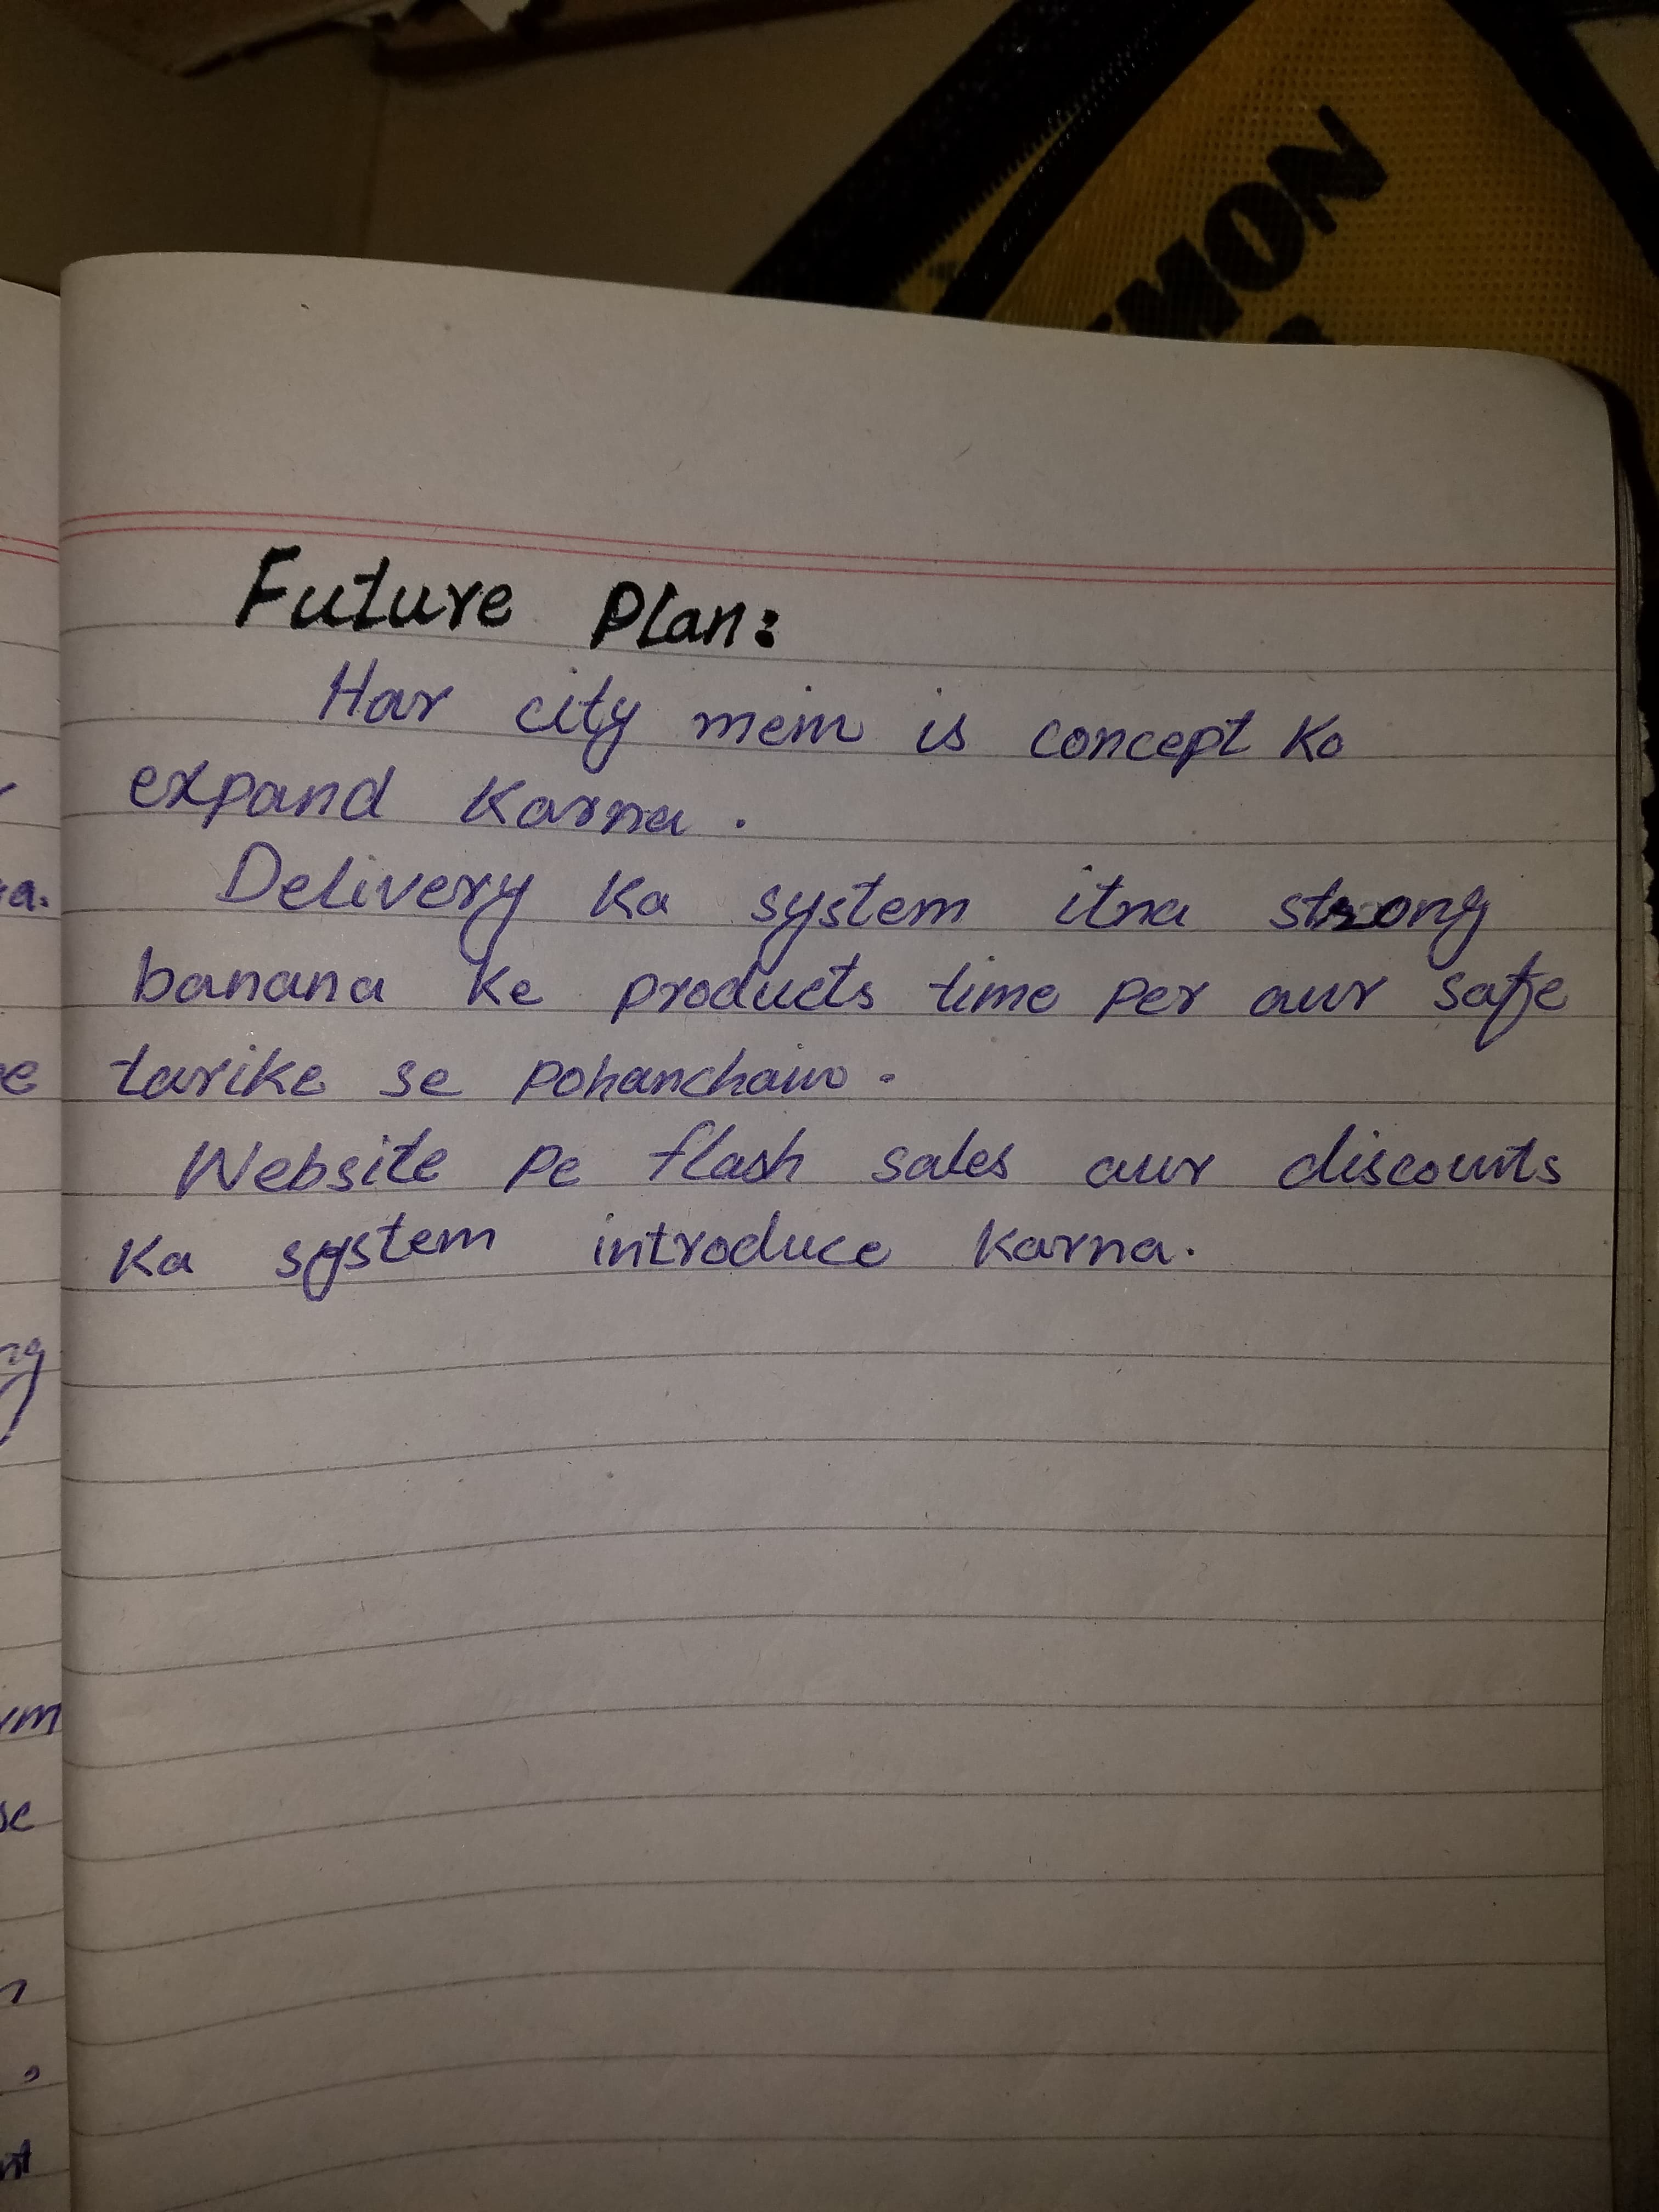 MON
Future Plan:
Har city mein is concept ko
expand karna.
Delivery ka system itna strong
banana ke products time per aur safe
tarike se pohanchain.
Website pe flash sales aur discounts
ka system introduce karna.